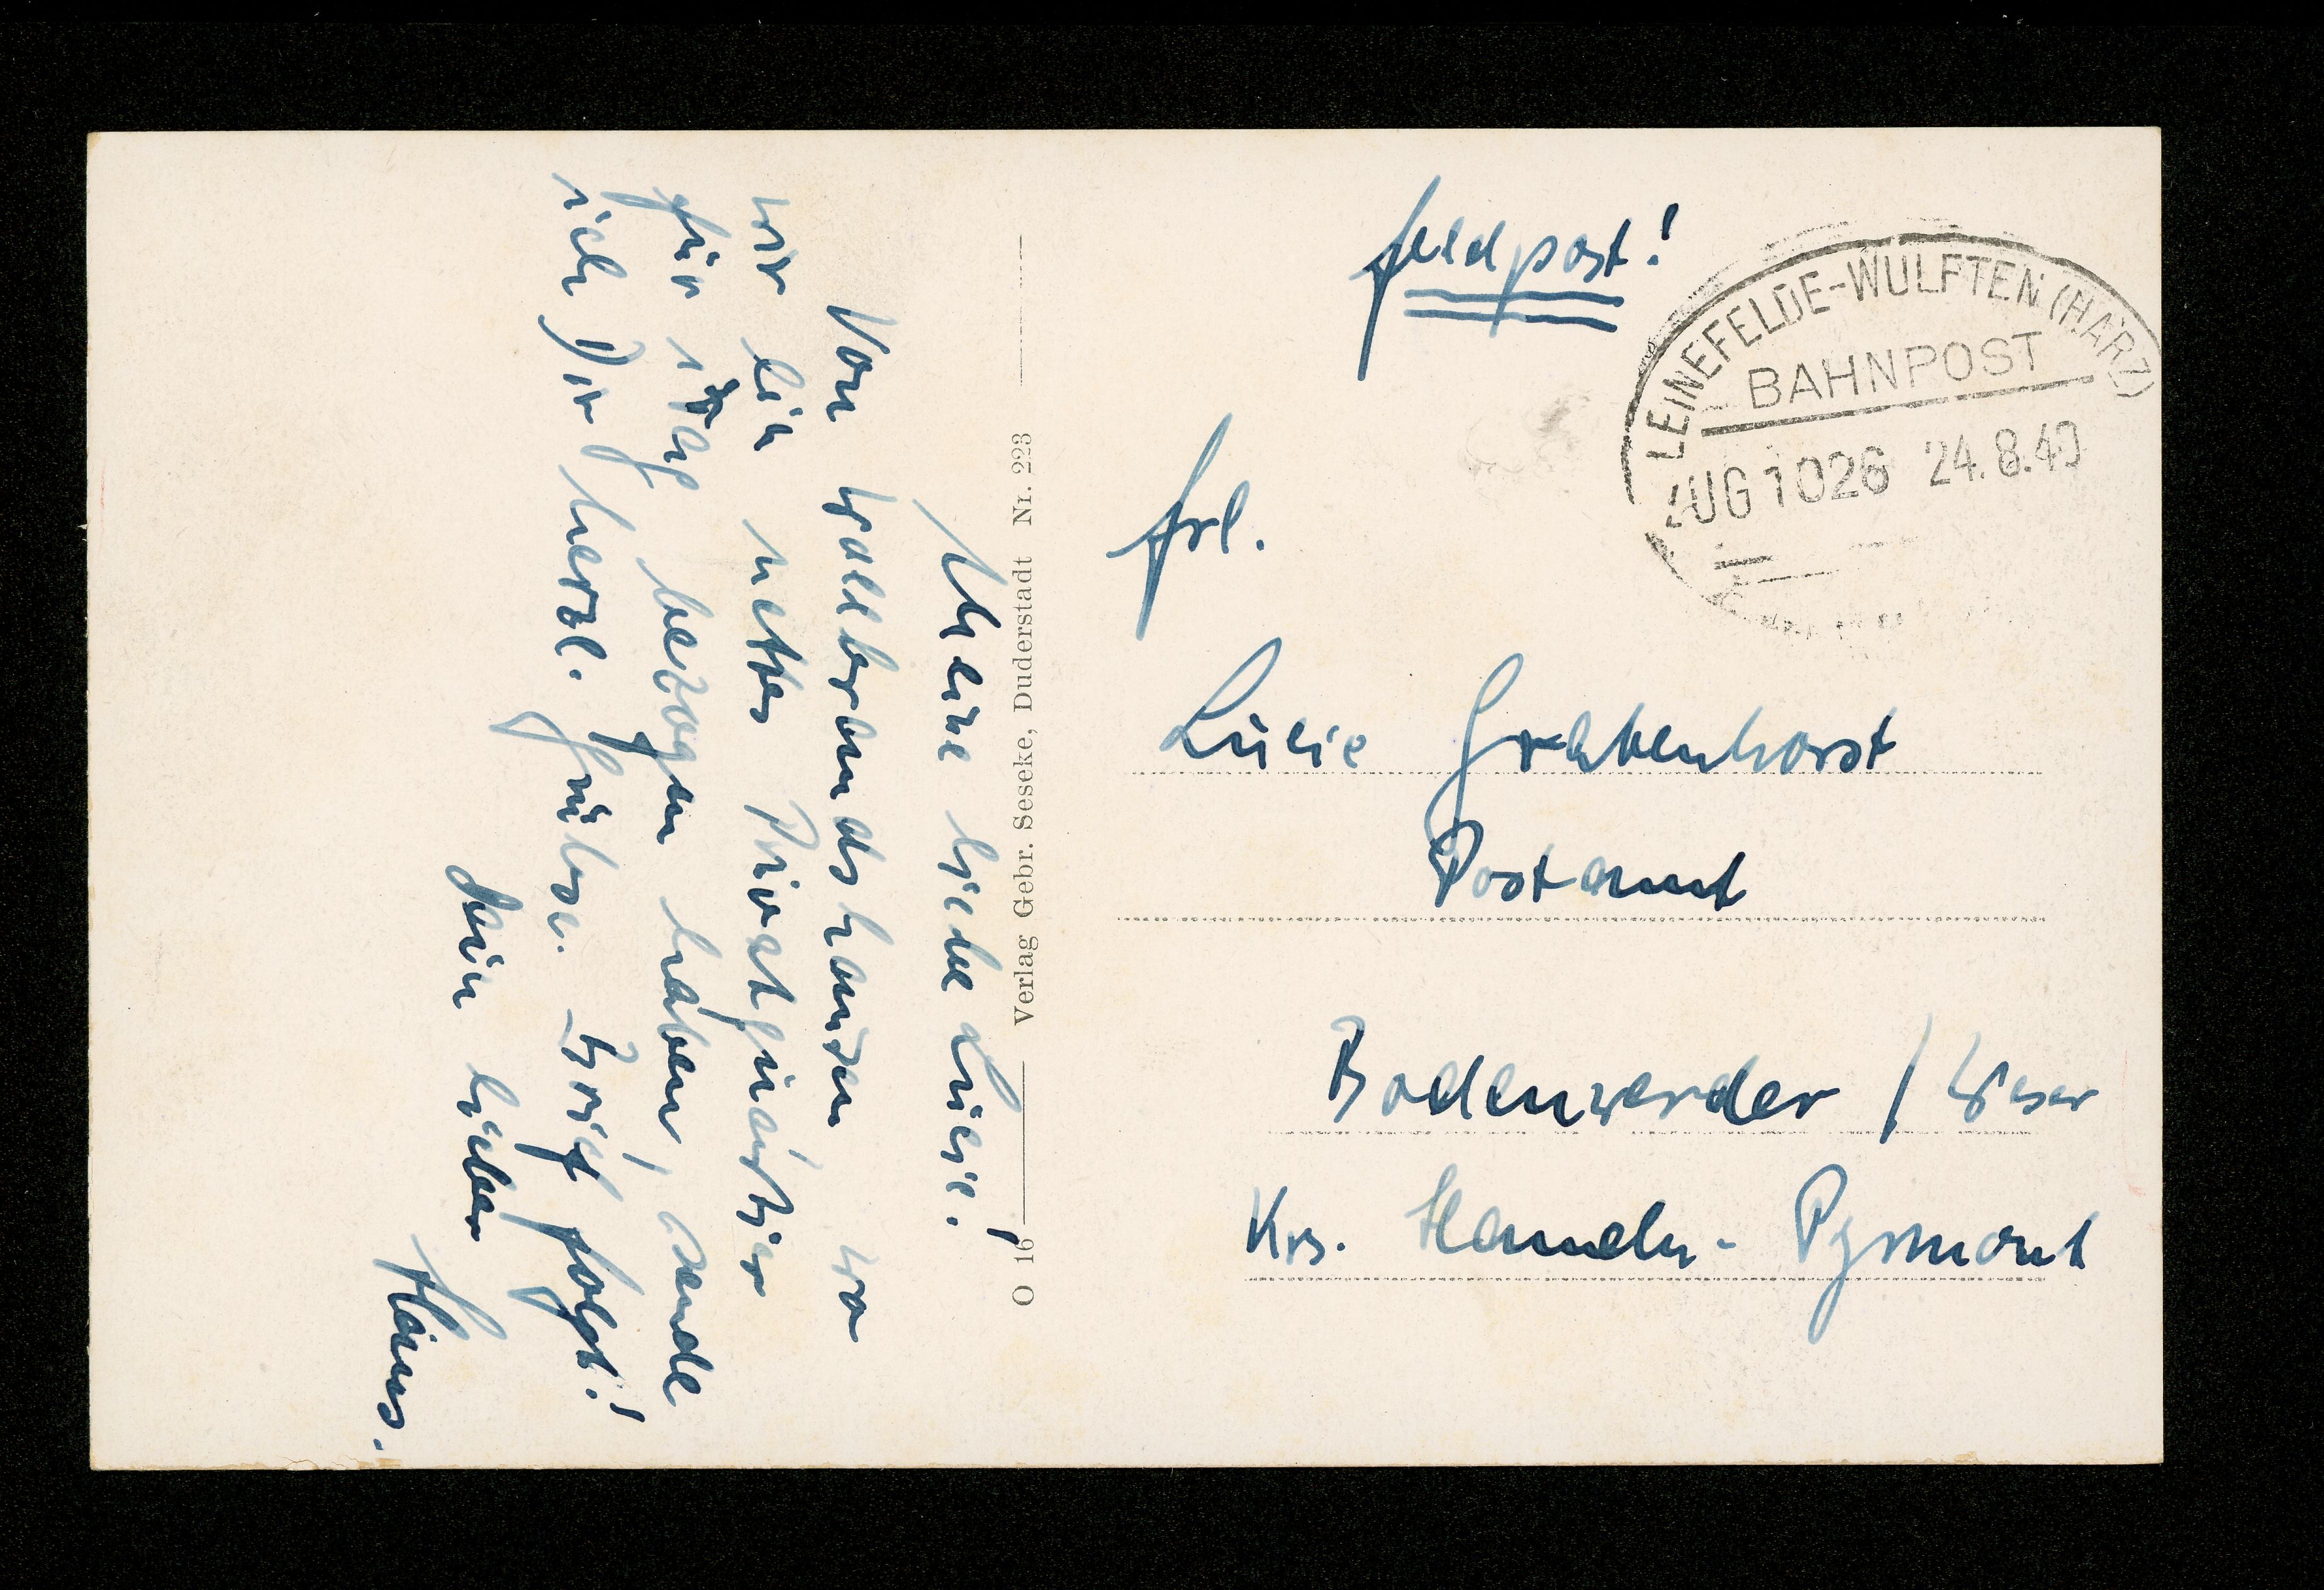 Meine liebe Lucie!
Von Wollbrandshausen wo
wir ein nettes Privatquartier
für
bezogen haben, sende
ich Dir herzl. Grüße. Brief folgt!
Dein lieber
Hans.
O 16 Verlag Gebr. Seseke, Duderstadt Nr. 223
Feldpost!
LEINEFELDE-WULFTEN (HARZ)
BAHNPOST
ZUG 1026 24.8.40
Frl.
Lucie Grabenhorst
Postamt
Bodenwerder / Weser
Krs. Hameln-Pyrmont